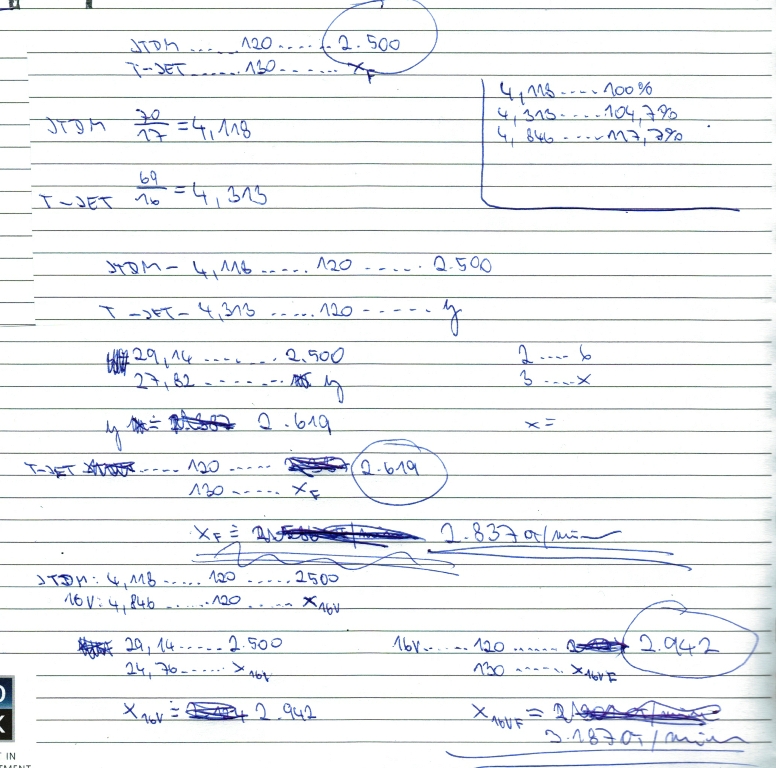 JTDM ..... 120 ..... 2.500
T-JET ..... 130 ..... XF
4,118 .... 100%
4,313 .... 104,7%
4,846 .... 117,7%
JTDM 70/17 = 4,118
T-JET 69/16 = 4,313
JTDM - 4,118 ..... 120 ..... 2.500
T-JET - 4,313 ..... 120 ..... y
29,14 ....... 2.500
27,82 ....... y
2 .... 6
3 .... x
y = 2.619
x =
T-JET ..... 120 ..... 2.619
130 ..... XF
XF = 2.837 σ/min
JTDM: 4,118 ..... 120 ..... 2500
16V: 4,846 ..... 120 ..... X16V
29,14 ..... 2.500
24,76 ..... X16V
16V ..... 120 ..... 2.942
130 ..... X16VF
X16V = 2.942
X16VF =
3.187 σ/min
K